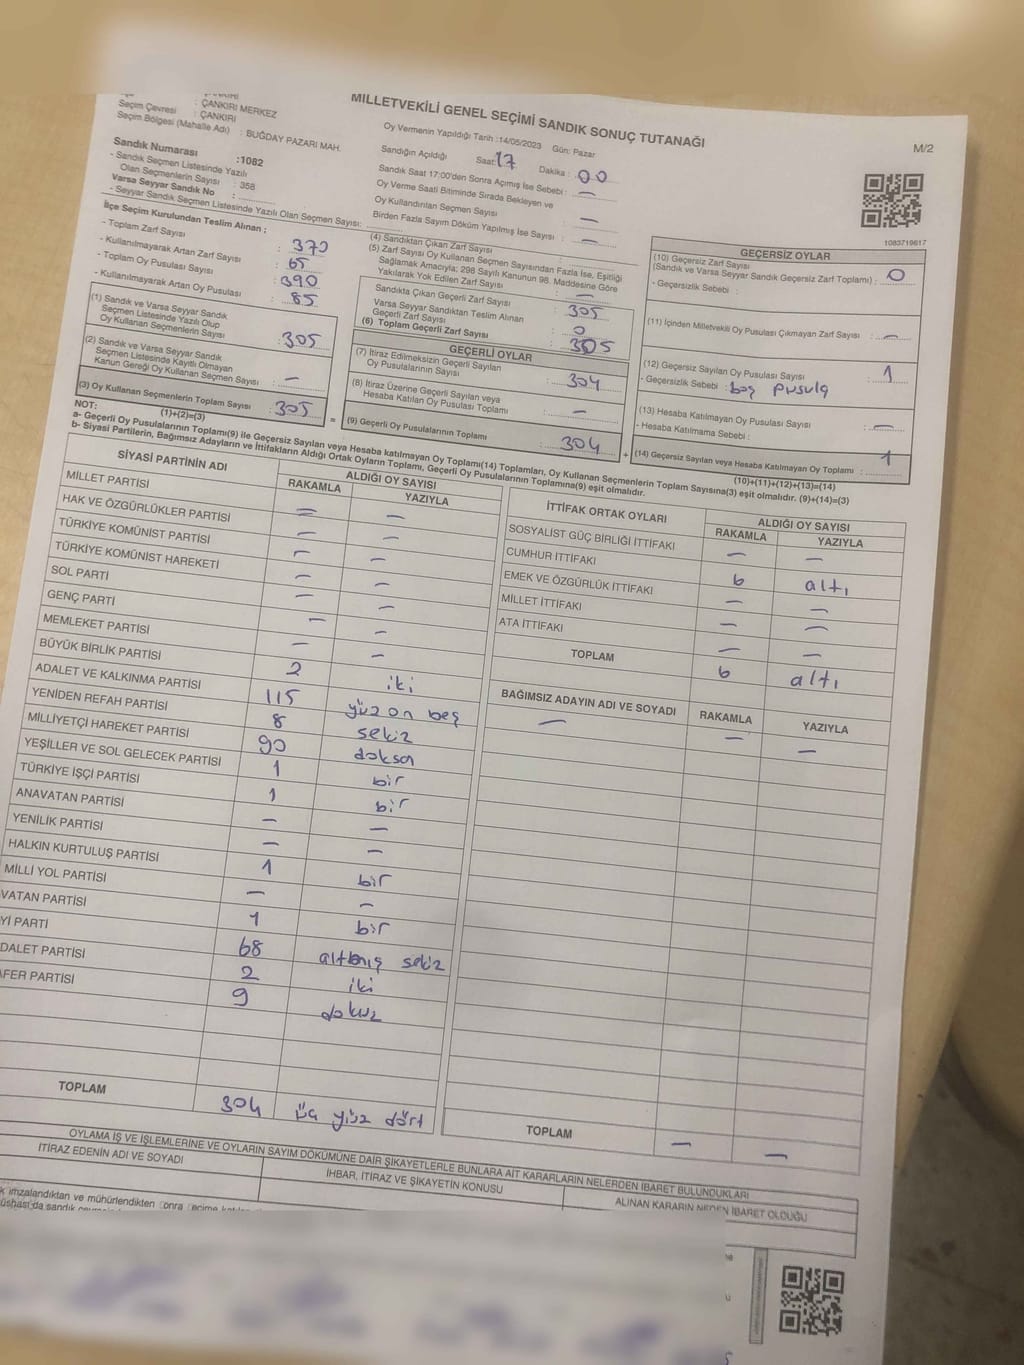 MİLLETVEKİLİ GENEL SEÇİMİ SANDIK SONUÇ TUTANAĞI
M/2
: ÇANKIRI MERKEZ
Seçim Çevresi : ÇANKIRI
Seçim Bölgesi (Mahalle Adı) : BUĞDAY PAZARI MAH.
Sandık Numarası :1082
- Sandık Seçmen Listesinde Yazılı
Olan Seçmenlerin Sayısı : 358
Varsa Seyyar Sandık No :
- Seyyar Sandık Seçmen Listesinde Yazılı Olan Seçmen Sayısı:
Oy Vermenin Yapıldığı Tarih :14/05/2023 Gün: Pazar
Sandığın Açıldığı Saat: 17 Dakika : 00
Sandık Saat 17:00'den Sonra Açımış İse Sebebi : —
Oy Verme Saati Bitiminde Sırada Bekleyen ve
Oy Kullandırılan Seçmen Sayısı : —
Birden Fazla Sayım Döküm Yapılmış İse Sayısı : —
1083719617
İlçe Seçim Kurulundan Teslim Alınan :
- Toplam Zarf Sayısı : 370
- Kullanılmayarak Artan Zarf Sayısı : 65
- Toplam Oy Pusulası Sayısı : 390
- Kullanılmayarak Artan Oy Pusulası : 85
(1) Sandık ve Varsa Seyyar Sandık
Seçmen Listesinde Yazılı Olup
Oy Kullanan Seçmenlerin Sayısı : 305
(2) Sandık ve Varsa Seyyar Sandık
Seçmen Listesinde Kayıtlı Olmayan
Kanun Gereği Oy Kullanan Seçmen Sayısı : —
(3) Oy Kullanan Seçmenlerin Toplam Sayısı : 305
(1)+(2)=(3)
(4) Sandıktan Çıkan Zarf Sayısı
(5) Zarf Sayısı Oy Kullanan Seçmen Sayısından Fazla İse, Eşitliği
Sağlamak Amacıyla; 298 Sayılı Kanunun 98. Maddesine Göre
Yakılarak Yok Edilen Zarf Sayısı : —
Sandıkta Çıkan Geçerli Zarf Sayısı : 305
Varsa Seyyar Sandıktan Teslim Alınan
Geçerli Zarf Sayısı : 0
(6) Toplam Geçerli Zarf Sayısı : 305
GEÇERLİ OYLAR
(7) İtiraz Edilmeksizin Geçerli Sayılan
Oy Pusulalarının Sayısı : 304
(8) İtiraz Üzerine Geçerli Sayılan veya
Hesaba Katılan Oy Pusulası Toplamı : —
= (9) Geçerli Oy Pusulalarının Toplamı : 304 +
GEÇERSİZ OYLAR
(10) Geçersiz Zarf Sayısı
(Sandık ve Varsa Seyyar Sandık Geçersiz Zarf Toplamı) : 0
- Geçersizlik Sebebi :
(11) İçinden Milletvekili Oy Pusulası Çıkmayan Zarf Sayısı : —
(12) Geçersiz Sayılan Oy Pusulası Sayısı : 1
- Geçersizlik Sebebi : boş pusula
(13) Hesaba Katılmayan Oy Pusulası Sayısı : —
- Hesaba Katılmama Sebebi :
(14) Geçersiz Sayılan veya Hesaba Katılmayan Oy Toplamı : 1
(10)+(11)+(12)+(13)=(14)
NOT:
a- Geçerli Oy Pusulalarının Toplamı(9) ile Geçersiz Sayılan veya Hesaba katılmayan Oy Toplamı(14) Toplamları, Oy Kullanan Seçmenlerin Toplam Sayısına(3) eşit olmalıdır. (9)+(14)=(3)
b- Siyasi Partilerin, Bağımsız Adayların ve İttifakların Aldığı Ortak Oyların Toplamı, Geçerli Oy Pusulalarının Toplamına(9) eşit olmalıdır.
SİYASİ PARTİNİN ADI
ALDIĞI OY SAYISI
RAKAMLA YAZIYLA
MİLLET PARTİSİ — —
HAK VE ÖZGÜRLÜKLER PARTİSİ — —
TÜRKİYE KOMÜNİST PARTİSİ — —
TÜRKİYE KOMÜNİST HAREKETİ — —
SOL PARTİ — —
GENÇ PARTİ — —
MEMLEKET PARTİSİ — —
BÜYÜK BİRLİK PARTİSİ 2 iki
ADALET VE KALKINMA PARTİSİ 115 yüz on beş
YENİDEN REFAH PARTİSİ 8 sekiz
MİLLİYETÇİ HAREKET PARTİSİ 90 doksan
YEŞİLLER VE SOL GELECEK PARTİSİ 1 bir
TÜRKİYE İŞÇİ PARTİSİ 1 bir
ANAVATAN PARTİSİ — —
YENİLİK PARTİSİ — —
HALKIN KURTULUŞ PARTİSİ 1 bir
MİLLİ YOL PARTİSİ — —
VATAN PARTİSİ 1 bir
Yİ PARTİ 68 altmış sekiz
DALET PARTİSİ 2 iki
AFER PARTİSİ 9 dokuz
TOPLAM 304 üç yüz dört
İTTİFAK ORTAK OYLARI
ALDIĞI OY SAYISI
RAKAMLA YAZIYLA
SOSYALİST GÜÇ BİRLİĞİ İTTİFAKI — —
CUMHUR İTTİFAKI 6 altı
EMEK VE ÖZGÜRLÜK İTTİFAKI — —
MİLLET İTTİFAKI — —
ATA İTTİFAKI — —
TOPLAM 6 altı
BAĞIMSIZ ADAYIN ADI VE SOYADI RAKAMLA YAZIYLA
— — —
TOPLAM — —
OYLAMA İŞ VE İŞLEMLERİNE VE OYLARIN SAYIM DÖKÜMÜNE DAİR ŞİKAYETLERLE BUNLARA AİT KARARLARIN NELERDEN İBARET BULUNDUKLARI
İTİRAZ EDENİN ADI VE SOYADI
İHBAR, İTİRAZ VE ŞİKAYETİN KONUSU
ALINAN KARARIN NEDEN İBARET OLDUĞU
k imzalandıktan ve mühürlendikten sonra